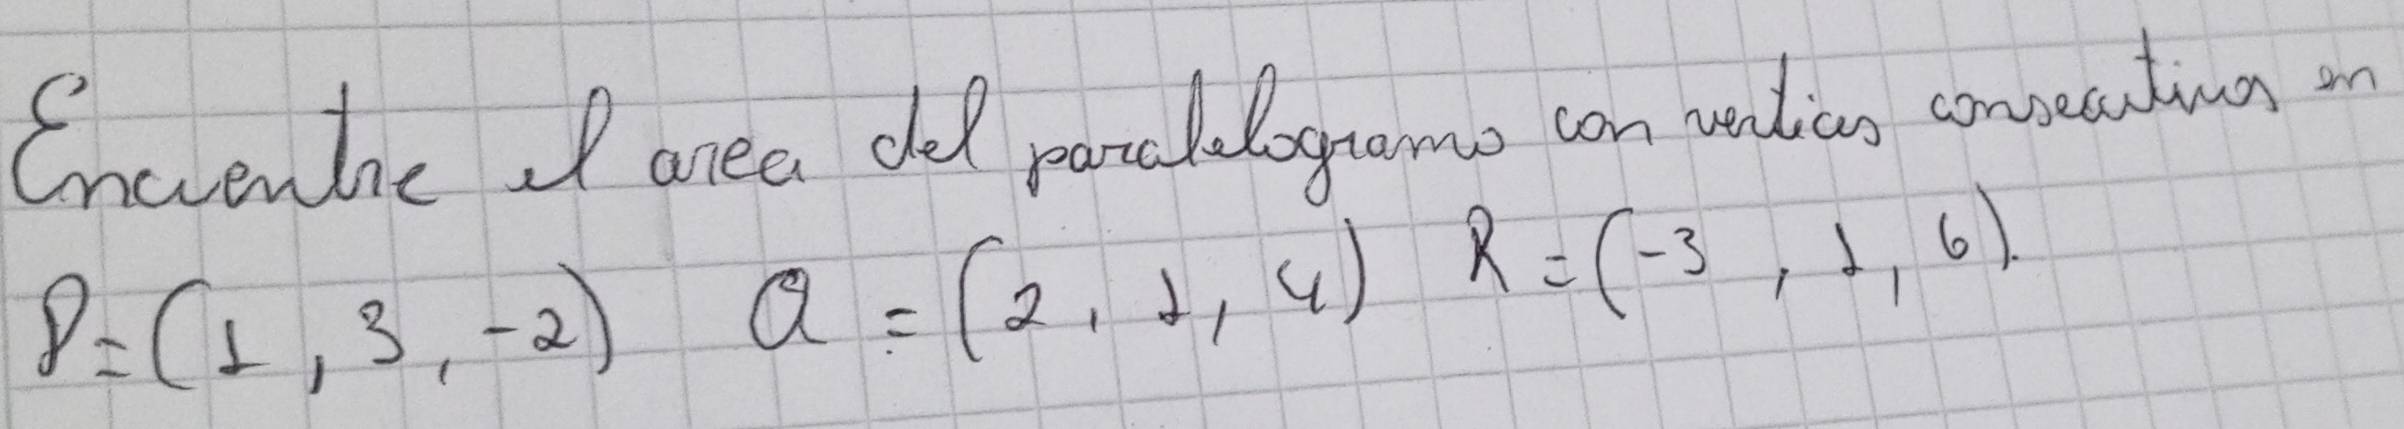 Encuentre el area del paralelogramo con vertices consecutivos en
P=(1, 3, -2) Q = (2, 1, 4) R = (-3, 1, 6).